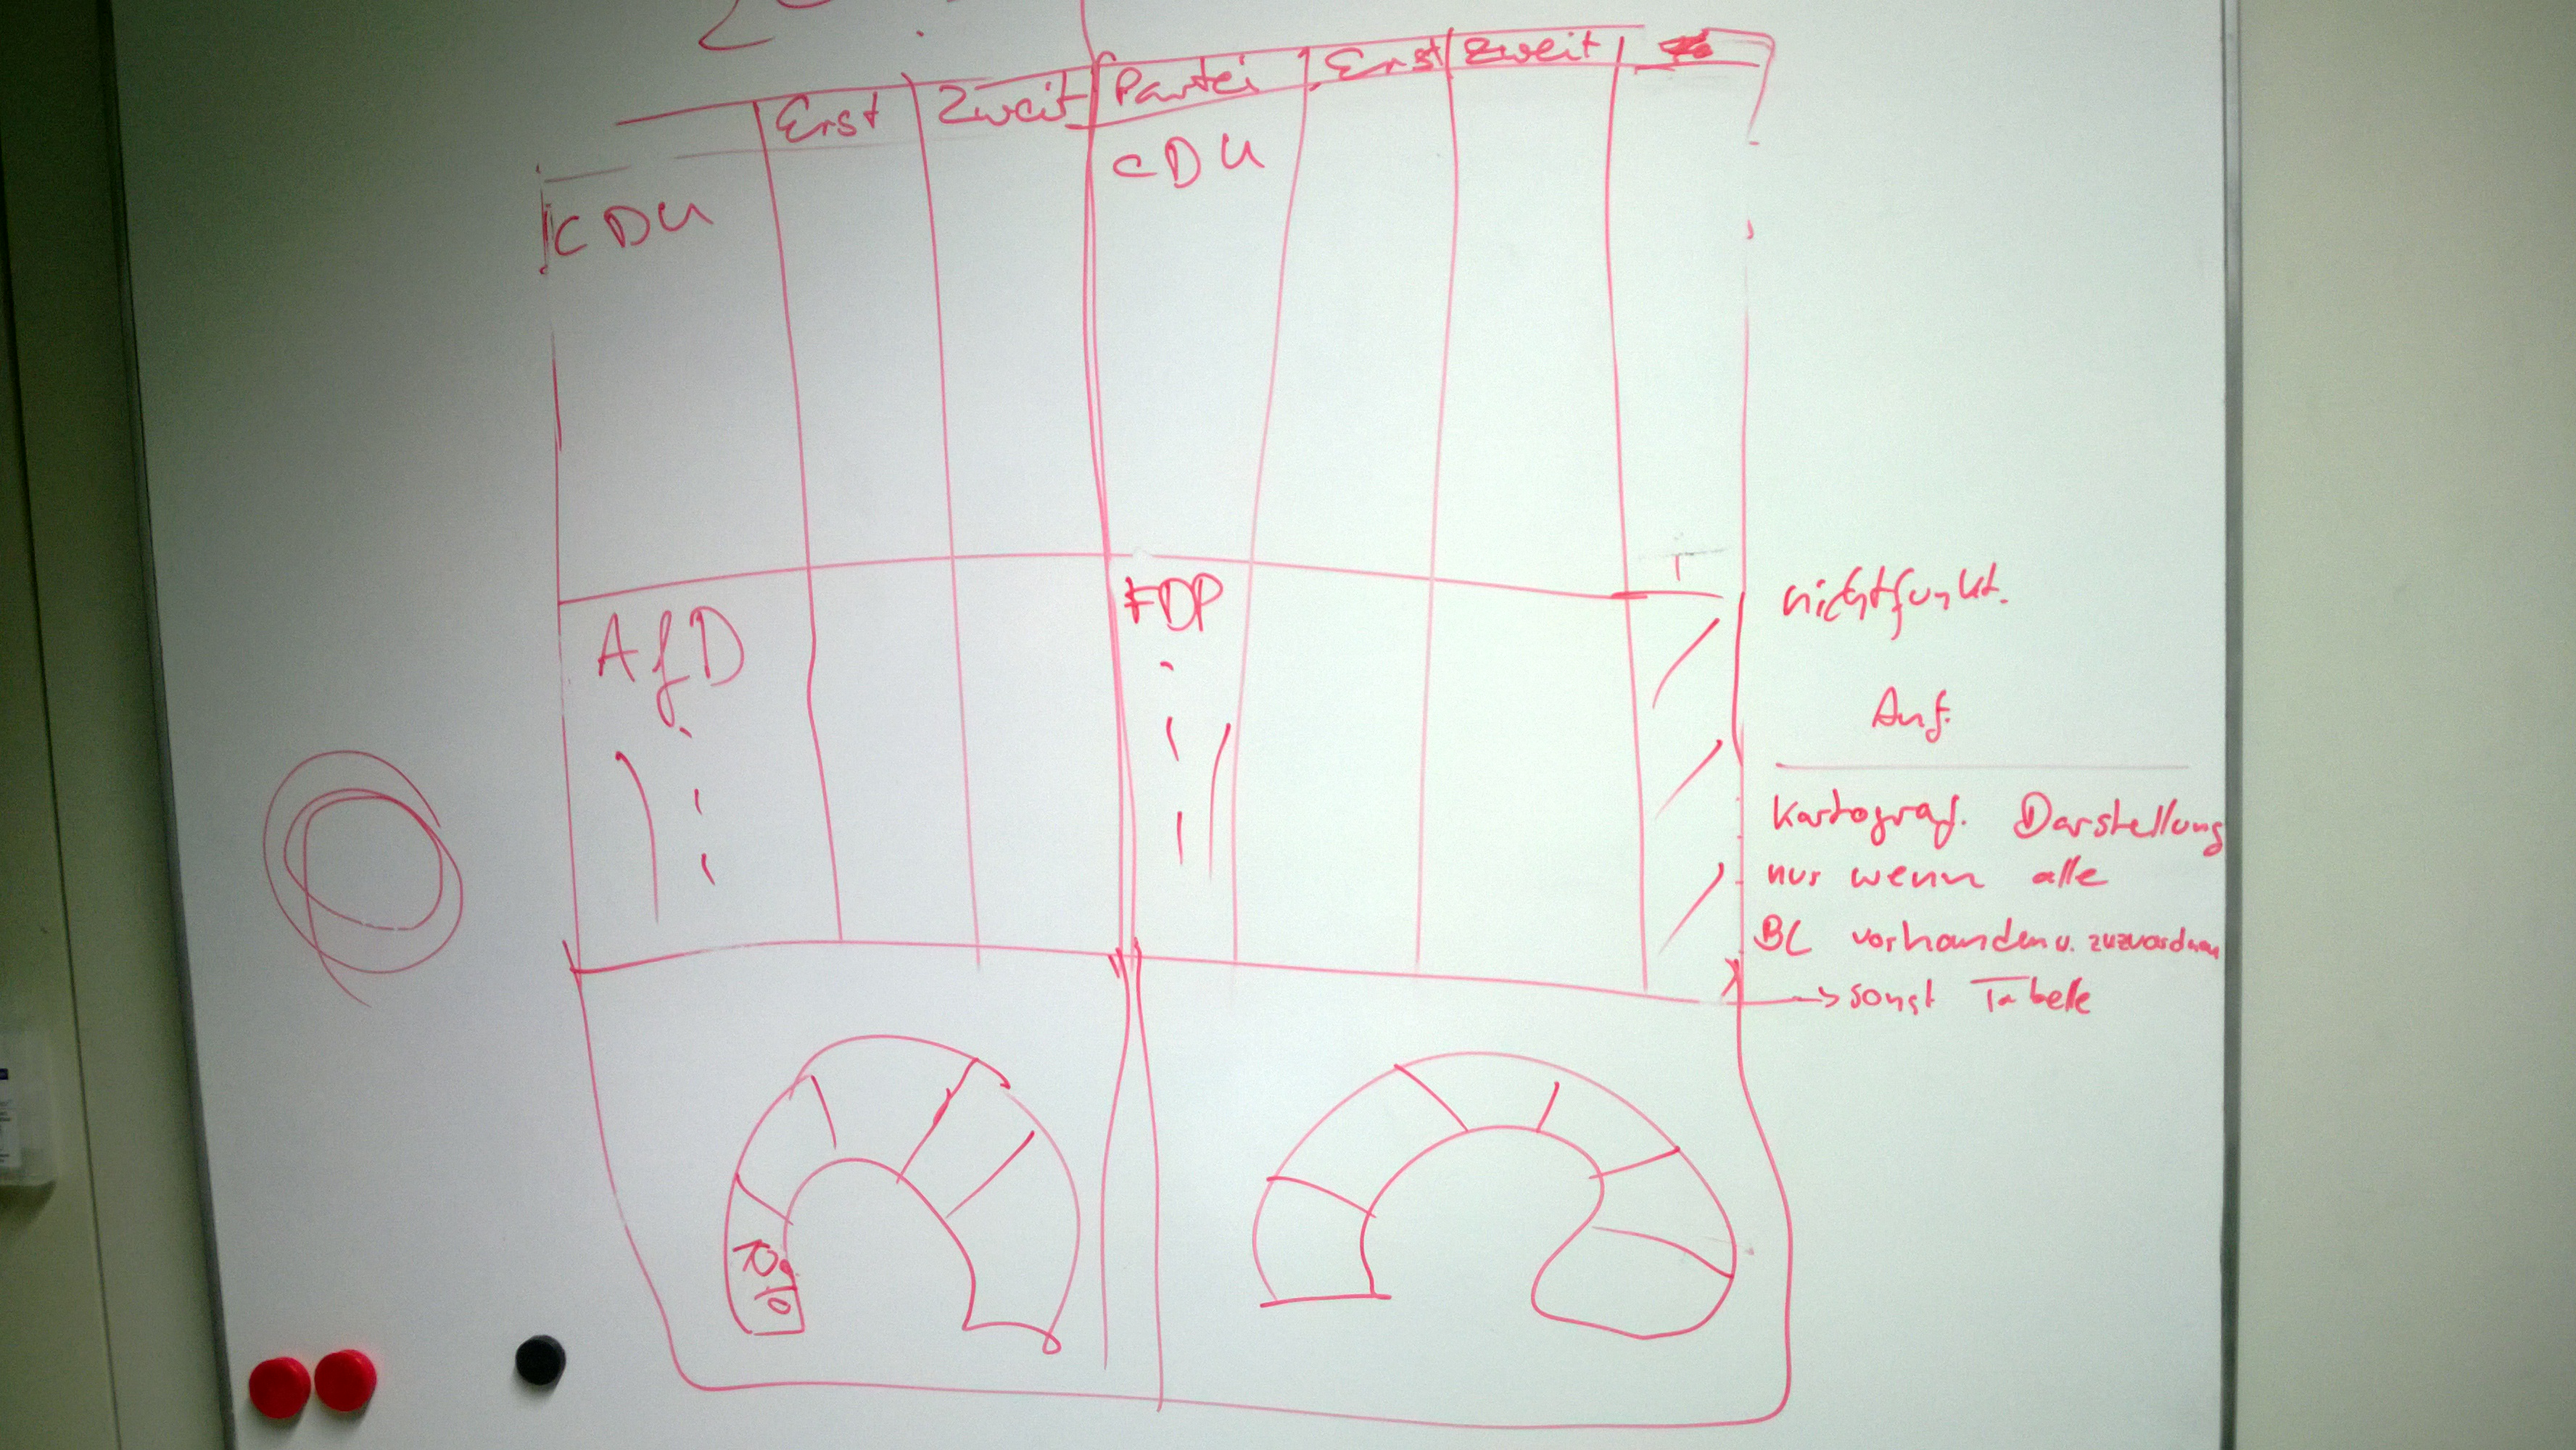 Erst Zweit Partei Erst Zweit
CDU CDU
AfD FDP
nichtfunkt.
Anf.
Kartograf. Darstellung
nur wenn alle
BL vorhanden u.
→ sonst Tabelle